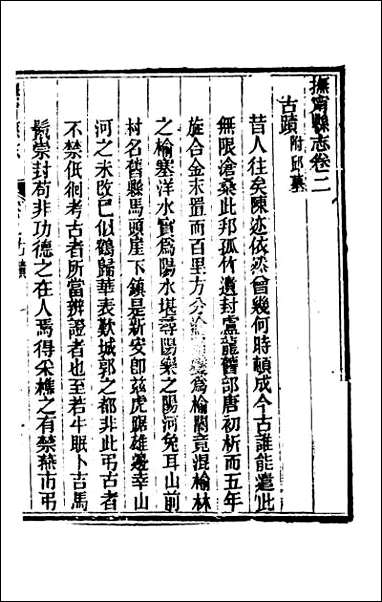 撫甯縣志卷二
古蹟附邱墓
昔人往矣陳迹依然曾幾何時頓成今古誰能遣此
無限滄桑此邦孤竹遺封盧龍舊部唐初析而五年
旋合金末置而百里方分為榆關竟混榆林
之榆塞洋水實為陽水堪尋陽樂之陽河兔耳山前
村名舊縣馬頭崖下鎮是新安卽茲虎踞雄邊幸山
河之未改已似鶴歸華表歎城郭之都非此弔古者
不禁低徊考古者所當辨證者也至若牛眠卜吉馬
鬛崇封苟非功德之在人焉得采樵之有禁燕市弔